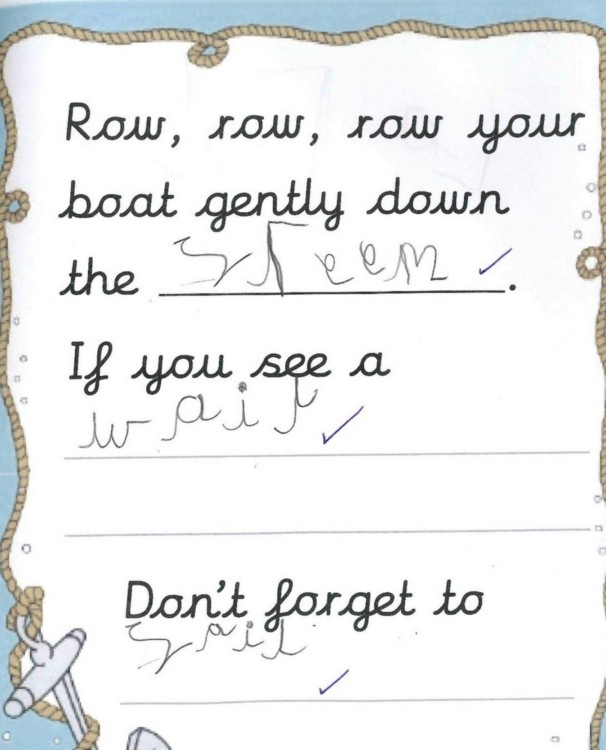 Row, row, row your
boat gently down
the steem.
If you see a
wail
Don't forget to
sail